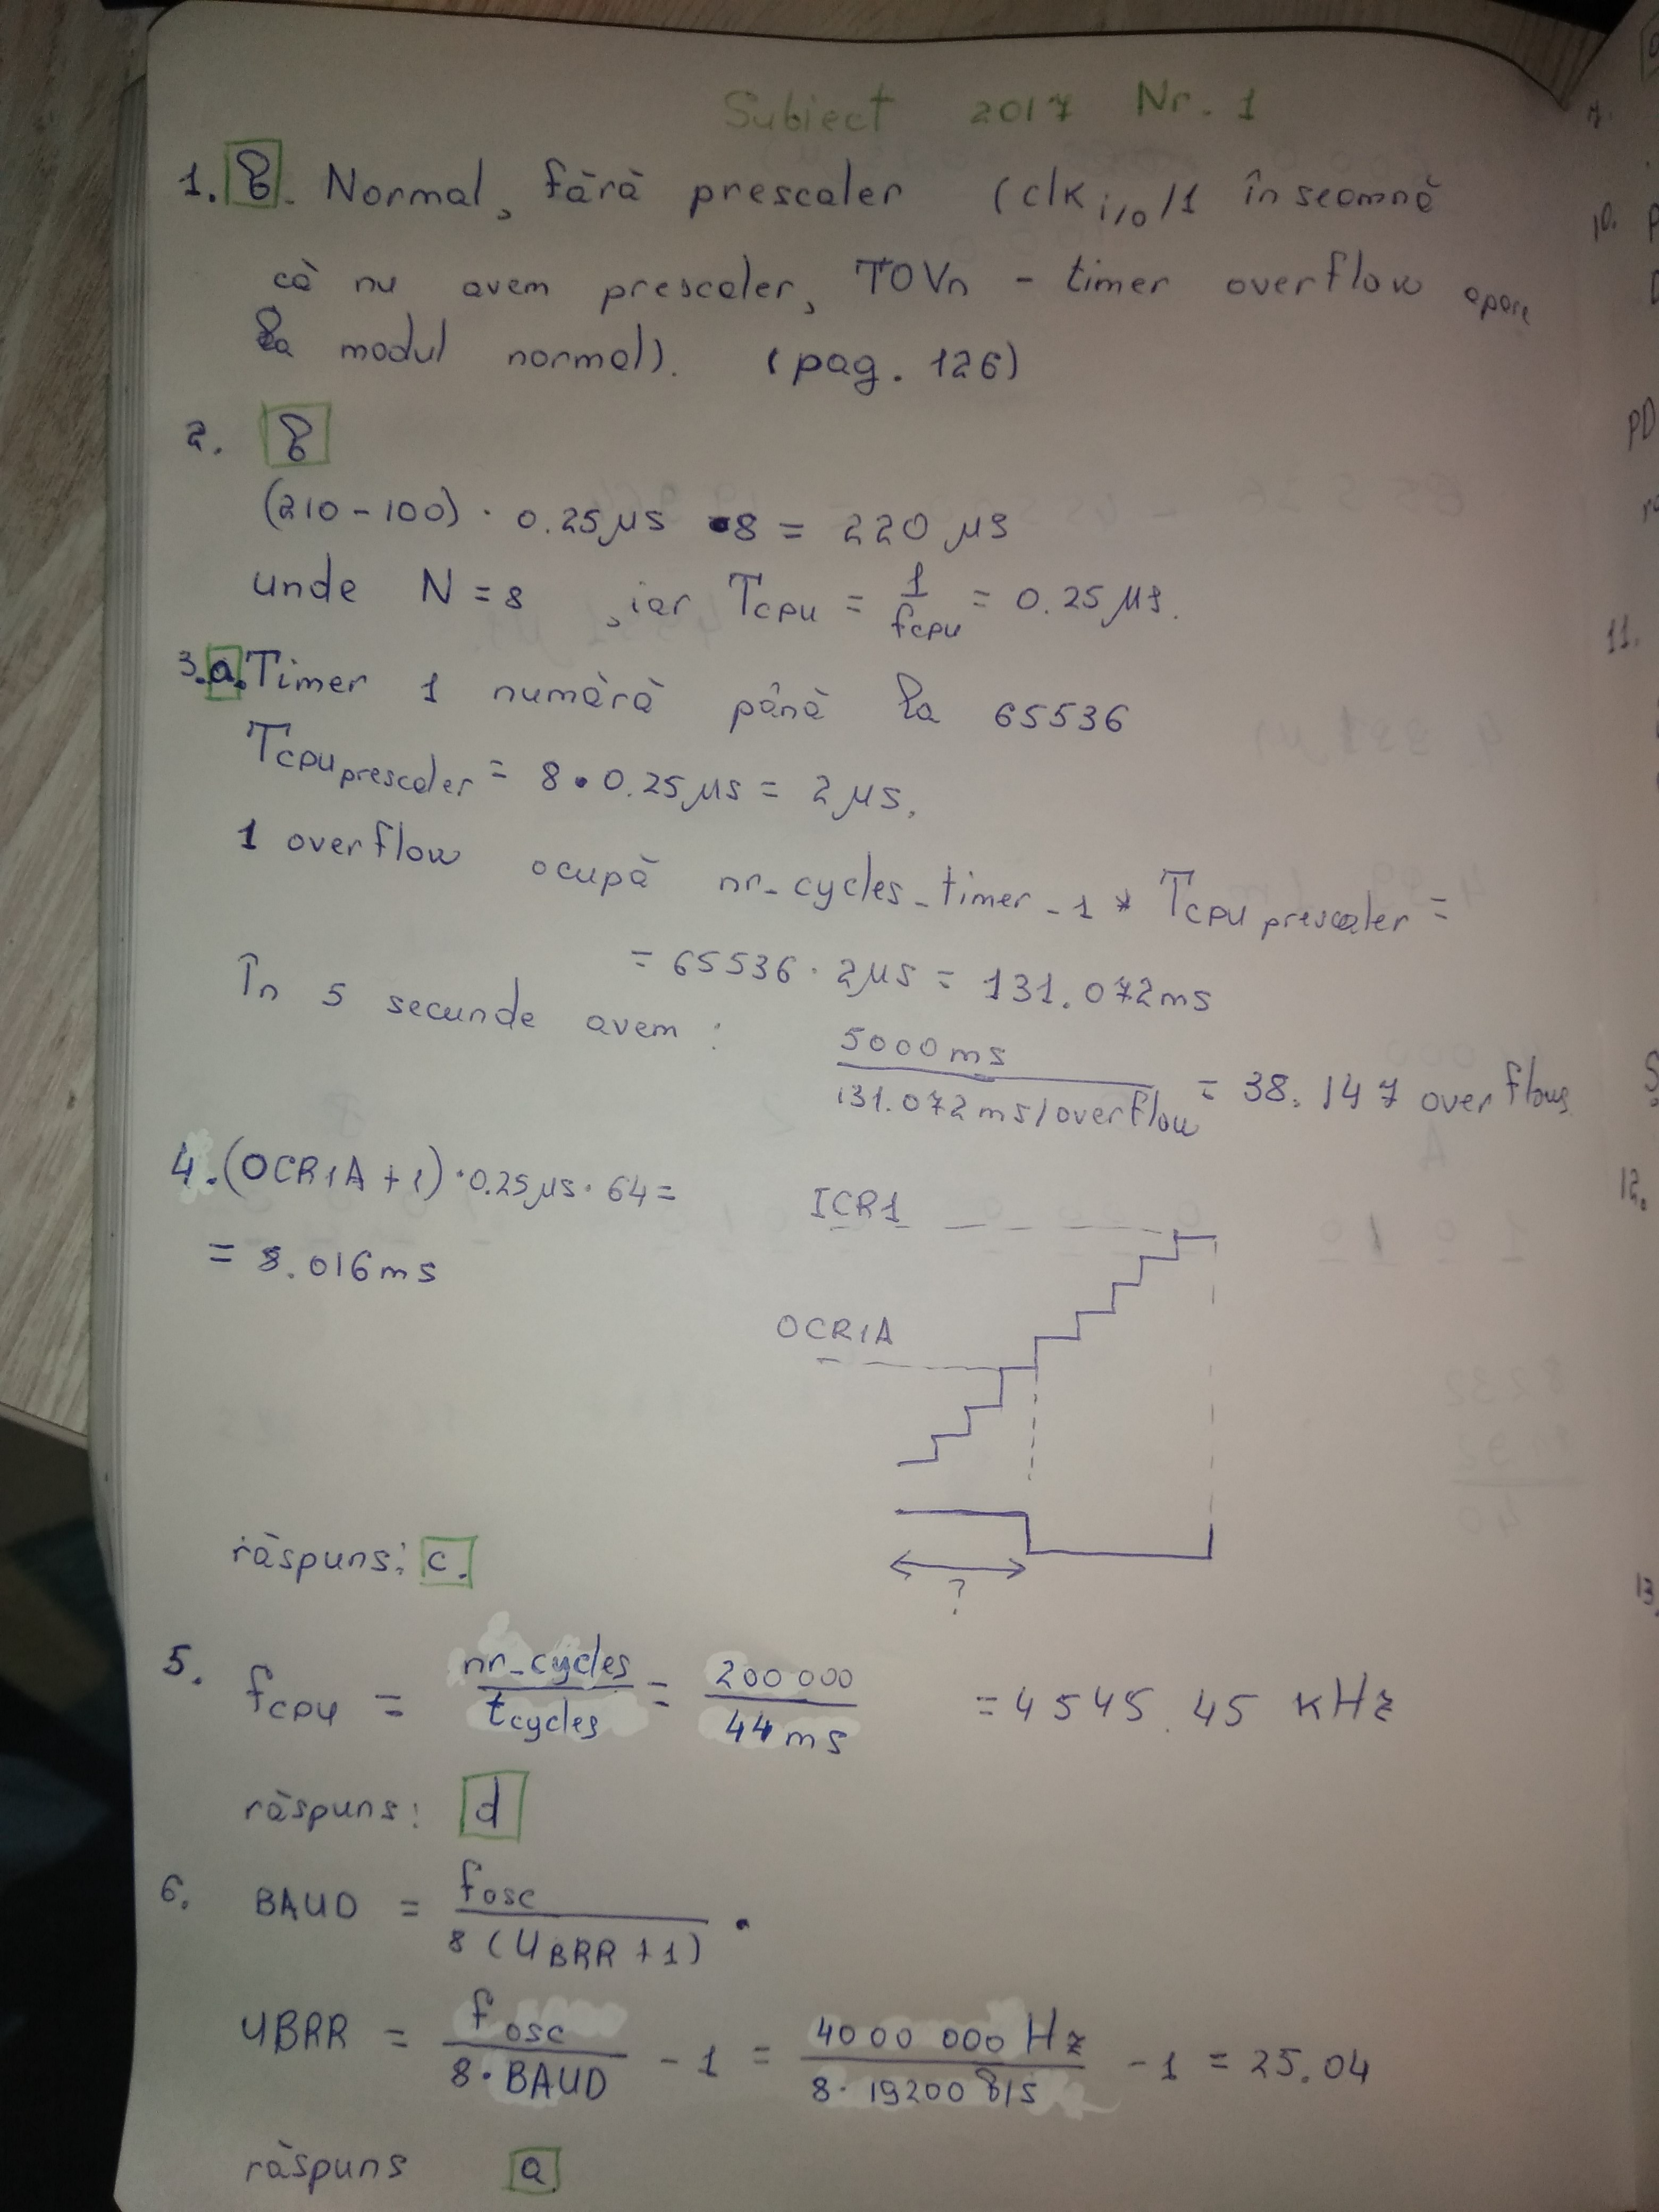 Subiect 2017 Nr. 1
1. b. Normal, fără prescaler (clk i/o /1 înseamnă
că nu avem prescaler, TOVn - timer overflow apare
la modul normal). (pag. 126)
2. b
(210-100) · 0.25μs · 8 = 220 μs
unde N = 8 , iar Tcpu = 1/fcpu = 0.25 μs.
3. a. Timer 1 numără până la 65536
Tcpu prescaler = 8 · 0.25μs = 2μs.
1 overflow ocupă nr_cycles_timer_1 * Tcpu prescaler =
= 65536 · 2μs = 131.072ms
În 5 secunde avem : 5000ms / 131.072ms/overflow = 38.147 overflows
4. (OCR1A + 1) · 0.25μs · 64 =
= 8.016ms
ICR1
OCR1A
?
răspuns: c.
5. fcpu = nr_cycles / tcycles = 200 000 / 44ms = 4545.45 kHz
răspuns: d
6. BAUD = fosc / 8 (UBRR + 1)
UBRR = fosc / 8·BAUD - 1 = 4000 000 Hz / 8·19200 b/s - 1 = 25.04
răspuns a
10.
11.
12.
13.